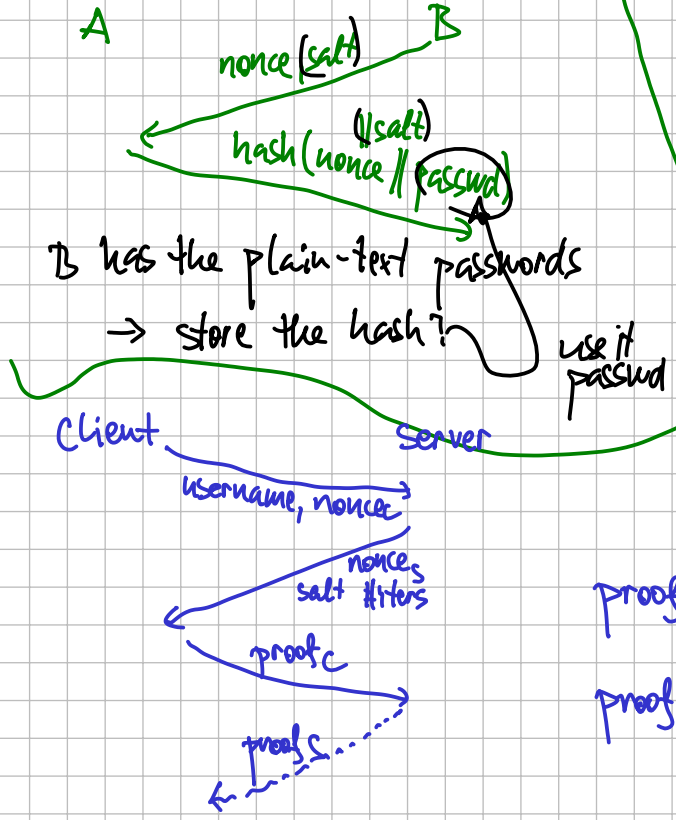 A B
nonce (salt)
(||salt)
hash(nonce || passwd)
B has the plain-text passwords
→ store the hash?
use it
passwd
Client Server
username, nonce_c
nonce_s
salt #iters
proof_c
proof_s
proof
proof